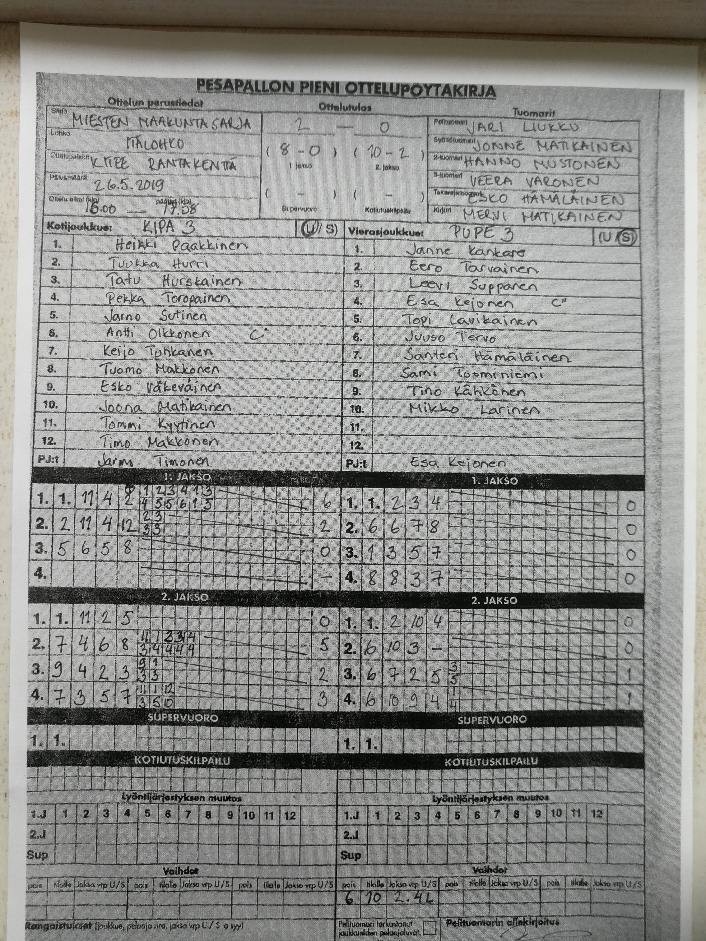 PESÄPALLON PIENI OTTELUPÖYTÄKIRJA
Ottelun perustiedot Ottelutulos Tuomarit
Sarja MIESTEN MAAKUNTASARJA 2 — 0 Pelituomari JARI LIUKKU
Lohko ITÄLOHKO ( 8 - 0 ) ( 10 - 2 ) JONNE MATIKAINEN
1. jakso 2. jakso
KITEE RANTAKENTTÄ 2-tuomari HANNO MUSTONEN
26.5.2019 ( - ) ( - ) 3-tuomari VEERA VARONEN
16.00 — 17.58 Supervuoro Kotiutuskilpailu ESKO HÄMÄLÄINEN
Kirjuri MERVI MATIKAINEN
Kotijoukkue: KIPA 3 (U/S) Vierasjoukkue: PUPE 3 (U/S)
1. Heikki Paakkinen 1. Janne Kankare
2. Tuukka Hurri 2. Eero Tarvainen
3. Tatu Hurskainen 3. Leevi Supparen
4. Pekka Toropainen 4. Esa Kejonen C"
5. Jarno Sutinen 5. Topi Lavikainen
6. Antti Olkkonen C" 6. Juuso Tervo
7. Keijo Tohkanen 7. Santeri Hämäläinen
8. Tuomo Makkonen 8. Sami
9. Esko Väkeväinen 9. Tino Kähkönen
10. Joona Matikainen 10. Mikko Larinen
11. Tommi Kyytinen 11.
12. Timo Makkonen 12.
PJ:t Jarmi Timonen PJ:t Esa Kejonen
1. JAKSO 1. JAKSO
1. 1. 11 4 6 1. 1. 2 3 4 0
2. 2 11 4 12 2 3 2 2. 6 6 7 8 0
3 3
3. 5 6 5 8 0 3. 1 3 5 7 0
4. - 4. 8 8 3 7 0
2. JAKSO 2. JAKSO
1. 1. 11 2 5 0 1. 1. 2 10 4 0
2. 7 4 6 8 5 2. 6 10 3 - 0
3. 9 4 2 3 9 1 2 3. 6 7 2 5 3 1
3 3 3
4. 7 3 5 7 11 1 12 3 4. 6 10 9 4 1
3 5 10
SUPERVUORO SUPERVUORO
1. 1. 1. 1.
KOTIUTUSKILPAILU KOTIUTUSKILPAILU
Lyöntijärjestyksen muutos Lyöntijärjestyksen muutos
1.J 1 2 3 4 5 6 7 8 9 10 11 12 1.J 1 2 3 4 5 6 7 8 9 10 11 12
2.J 2.J
Sup Sup
Vaihdot Vaihdot
pois tilalle Jakso vrp U/S pois tilalle Jakso vrp U/S pois tilalle Jakso vrp U/S pois tilalle Jakso vrp U/S pois tilalle Jakso vrp U/S pois tilalle Jakso vrp U/S
6 10 2.4L
Rangaistukset (joukkue, pelaaja nro, jakso vrp U/S o syy) Pelituomari tarkastanut joukkueiden pelaajaluvat Pelituomarin allekirjoitus